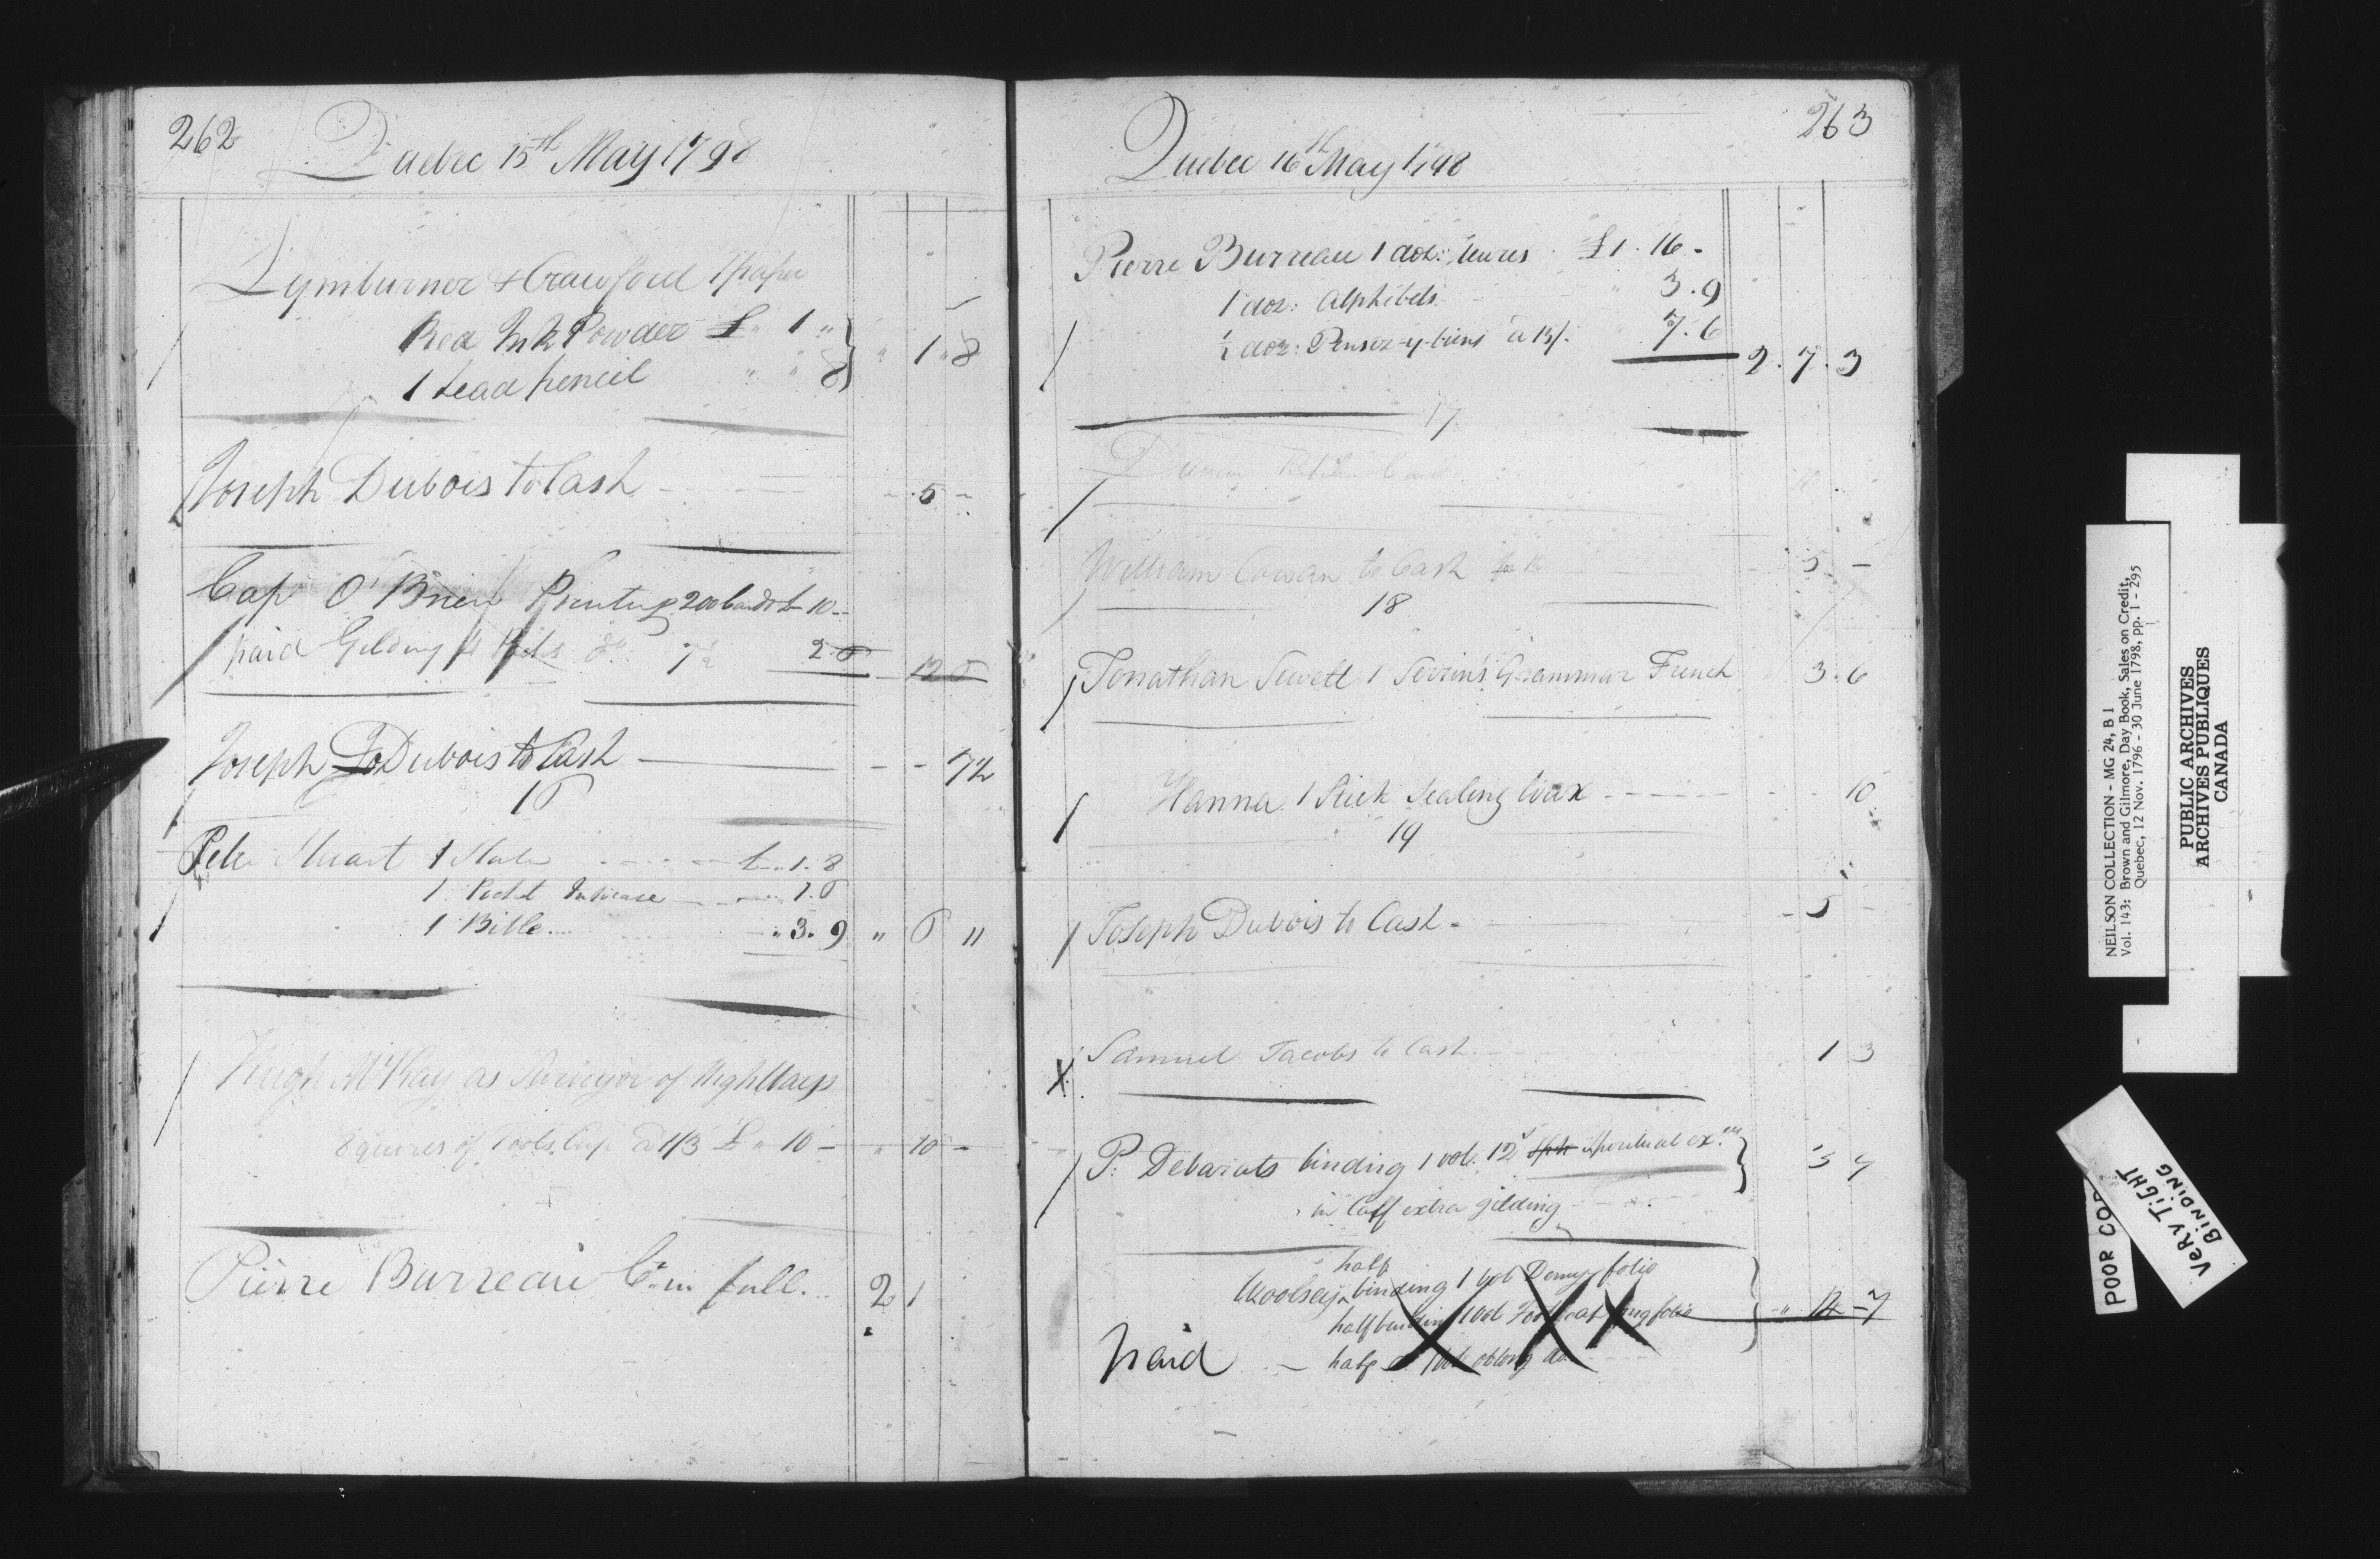 262
Quebec 15th May 1798
Lymburner & Crawford 1 paper
Red Ink Powder £ " 1 "
1 Lead pencil " " 8 } " 1 " 8
Joseph Dubois to Cash - 5 -
Cap O'Brien Printing 200 Cards £ 10 -
paid Gilding do 7½ 2.6 12 6
Joseph Dubois to Cash - - 7½
16
Peter Stuart 1 Slate £ " 1. 8
1 Pocket Inkcase 1. 6
1 Bible " 3. 9 " 6 "
Hugh McKay as Surveyor of Highways
8 quires of Fools Cap a 1/3 £ " 10 - " 10 -
Pierre Burreau Cr. in full 2 1
263
Quebec 16th May 1798
Pierre Burreau 1 doz: heures £1. 16 -
1 doz: Alphibets " 3. 9
½ doz: Pensez-y-biens a 15/. 7. 6 2. 7. 3
17
10
William Cowan to Cash - 5 -
18
Jonathan Sewell 1 Serrin's Grammar French 3. 6
Hanna 1 Stick Sealing Wax - - 10
19
Joseph Dubois to Cash - 5 -
Samuel Jacobs to Cash 1 3
P. Debarats binding 1 vol. 12s spiritual ex.
in Calf extra gilding } 3 9
half
Woolsey ^ binding 1 vol Demy folio
half binding 1 vol folio } " 12 - 7
paid - half do 1 vol oblong do
NEILSON COLLECTION - MG 24, B 1
Vol. 143: Brown and Gilmore, Day Book, Sales on Credit,
Quebec, 12 Nov. 1796 - 30 June 1798, pp. 1 - 295
PUBLIC ARCHIVES
ARCHIVES PUBLIQUES
CANADA
POOR COP
VERY TIGHT
BINDING